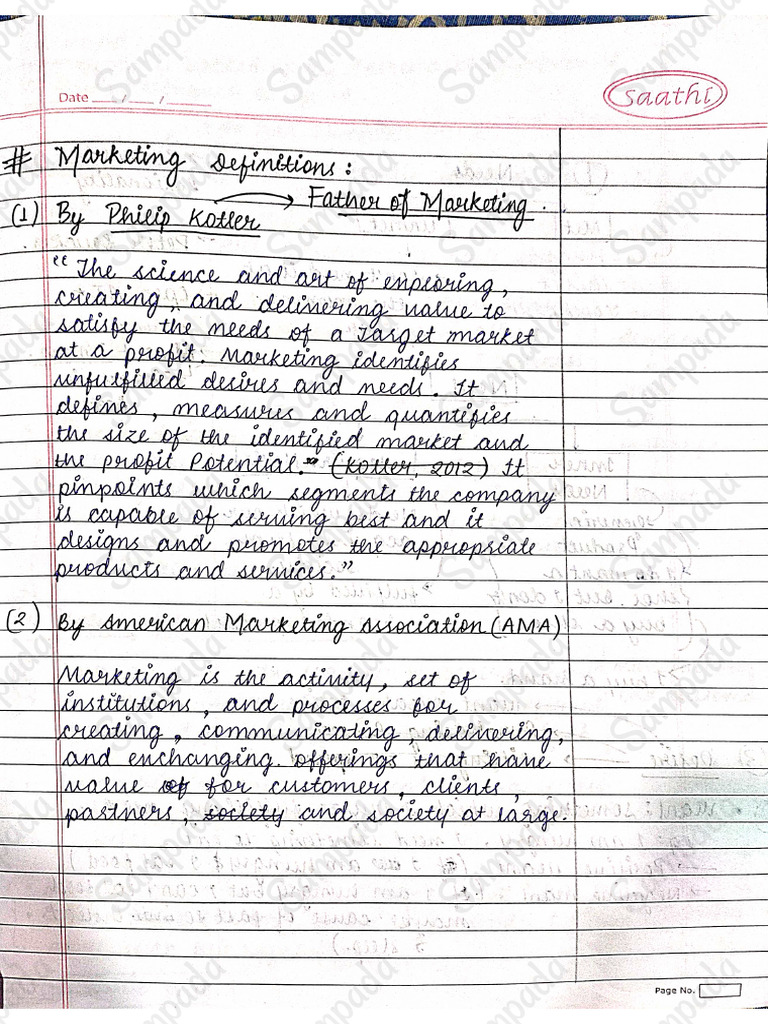 Date __/__/____
Saathi
# Marketing Definitions:
(1) By Philip Kotler → Father of Marketing.
"The science and art of exploring,
creating, and delivering value to
satisfy the needs of a Target market
at a profit. Marketing identifies
unfulfilled desires and needs. It
defines, measures and quantifies
the size of the identified market and
the profit Potential." (Kotler, 2012) It
pinpoints which segments the company
is capable of serving best and it
designs and promotes the appropriate
products and services."
(2) By American Marketing Association (AMA)
Marketing is the activity, set of
institutions, and processes for
creating, communicating, delivering,
and exchanging offerings that have
value of for customers, clients,
partners, society and society at large.
Page No.
Sampada